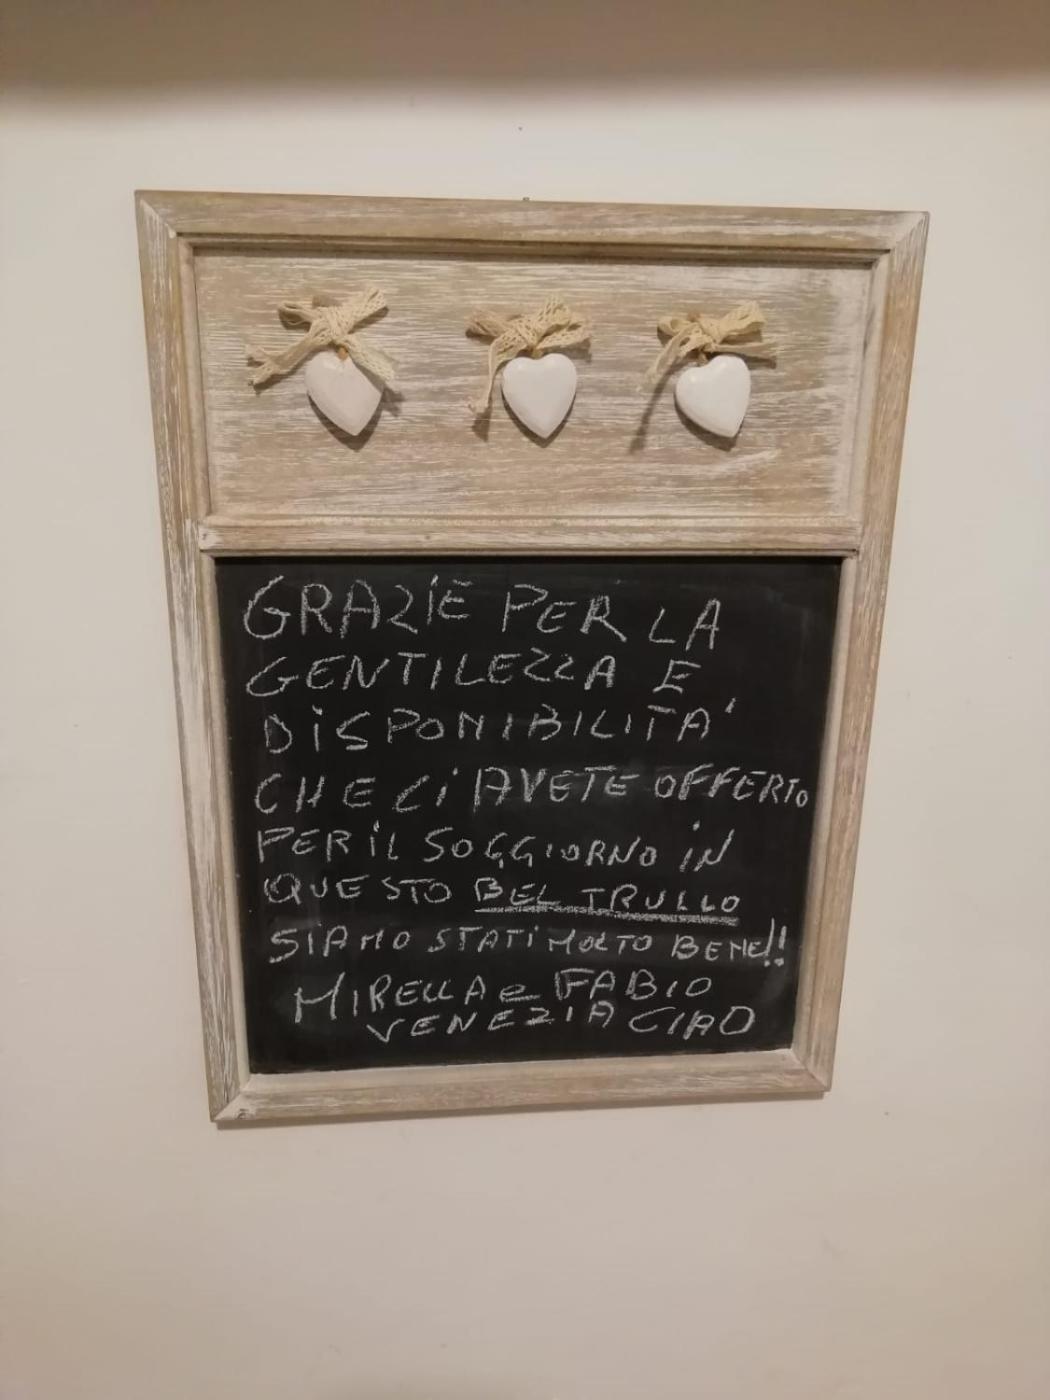 GRAZIE PER LA
GENTILEZZA E
DISPONIBILITA'
CHE CI AVETE OFFERTO
PER IL SOGGIORNO IN
QUESTO BEL TRULLO
SIAMO STATI MOLTO BENE!!
MIRELLA e FABIO
VENEZIA CIAO